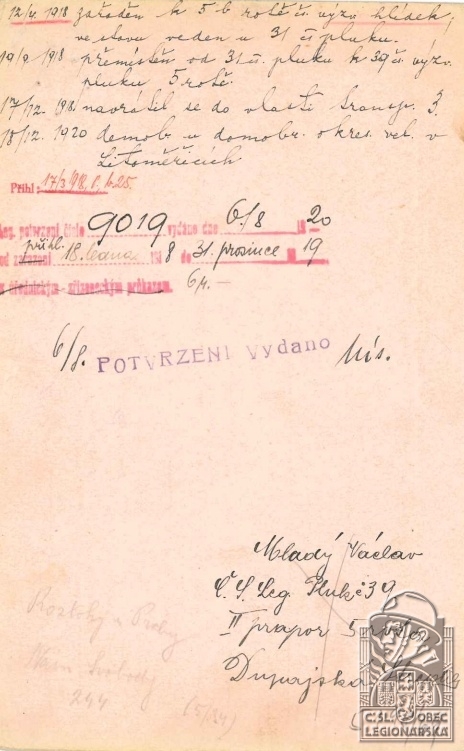 12/4. 1918 zařaděn k 5 b. rotě čí výzv. hlídek,
ve stavu veden u 31 čí pluku.
19/9 1918 přemístěn od 31 čí. pluku k 39 čí. výzv.
pluku 5 rotě.
17/12. 1918 navrátil se do vlasti transp. 3.
18/12. 1920 demob. u domobr. okres. vel. v
Litoměřicích
Přihl: 17/3 918, č. 25.
Leg. potvrzení číslo 9019 vydáno dne 6/8 1920
od zařazení přihl. 18. 1918 do 31. prosince 1919
6/8. POTVRZENÍ Vydano
Mladý Václav
Č. S. Leg. Pluk č 39
II prapor 5 rota
Roztoky u Prahy
Nám. Svobody
244
(5/34)
ČSL. OBEC
LEGIONÁŘSKÁ